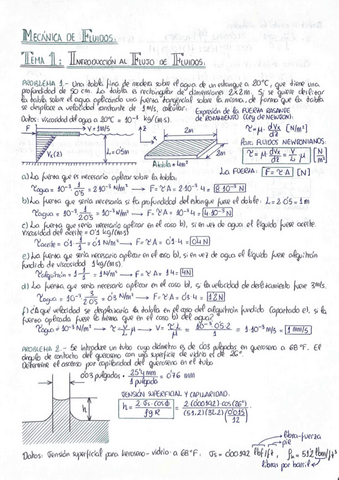 MECÁNICA DE FLUIDOS.
TEMA 1: INTRODUCCIÓN AL FLUJO DE FLUIDOS.
PROBLEMA 1.- Una tabla fina de madera sobre el agua de un estanque a 20°C, que tiene una
profundidad de 50 cm. La tabla es rectangular de dimensiones 2x2 m. Si se quiere deslizar
la tabla sobre el agua aplicando una fuerza tangencial sobre la misma, de forma que la tabla
se desplace a velocidad constante de 1 m/s, calcular:
Datos: Viscosidad del agua a 20°C = 10⁻³ kg/(m·s).
Expresión de la FUERZA RASANTE
DE ROZAMIENTO (Ley de NEWTON).
τ = μ · dVx/dz [N/m²]
Por: FLUIDOS NEWTONIANOS.
τ = μ dVx/dz = V/L μ [N/m²]
La FUERZA: F = τ A [N]
F V = 1 m/s z
L = 0'5 m
Vx(z)
2m 2m x
A tabla = 4m²
a) La fuerza que es necesario aplicar sobre la tabla.
τagua = 10⁻³ 1/0'5 = 2·10⁻³ N/m² → F = τ A = 2·10⁻³·4 = 8·10⁻³ N
b) La fuerza que sería necesaria si la profundidad del estanque fuera el doble. L = 2·0'5 = 1m
τagua = 10⁻³ 1/2·0'5 = 10⁻³ N/m² → F = τ A = 10⁻³·4 = 4·10⁻³ N
c) La fuerza que sería necesario aplicar en el caso b), si en vez de agua el líquido fuese aceite.
Viscosidad del aceite = 0'1 kg/(m·s)
τaceite = 0'1 · 1/1 = 0'1 N/m² → F = τ A = 0'1·4 = 0'4 N
e) La fuerza que sería necesario aplicar en el caso b), si en vez de agua el líquido fuese alquitrán
fundido de viscosidad 1 kg/(m·s).
τalquitrán = 1 · 1/1 = 1 N/m² → F = τ A = 1·4 = 4N
d) La fuerza que sería necesario aplicar en el caso b), si la velocidad de desplazamiento fuese 3 m/s.
F = τ A
f) ¿A qué velocidad se desplazaría la tabla en el caso del alquitrán fundido (apartado e), si la
fuerza aplicada fuese la misma que en el caso b) del agua?
τagua = 10⁻³ N/m² → τ = V/L μ → V = τ·L/μ
= 1·10⁻³ m/s
PROBLEMA 2.- Se introduce un tubo cuyo diámetro es de 0'03 pulgadas en queroseno a 68°F. El
ángulo de contacto del queroseno con una superficie de vidrio es de 26°.
Determine el ascenso por capilaridad del queroseno en el tubo.
0'03 pulgadas · 25'4 mm/1 pulgada = 0'76 mm
TENSIÓN SUPERFICIAL Y CAPILARIDAD.
h
h = 2 σs cosΦ/ρ g R = 2(0'00192)·cos(26°)/(51'2)(32'2)(0'015/12)
libra-fuerza
pie
Datos: Tensión superficial para keroseno - vidrio a 68°F. σs = 0'00192 lbf/ft, ρ = 51'2 lbm/ft³